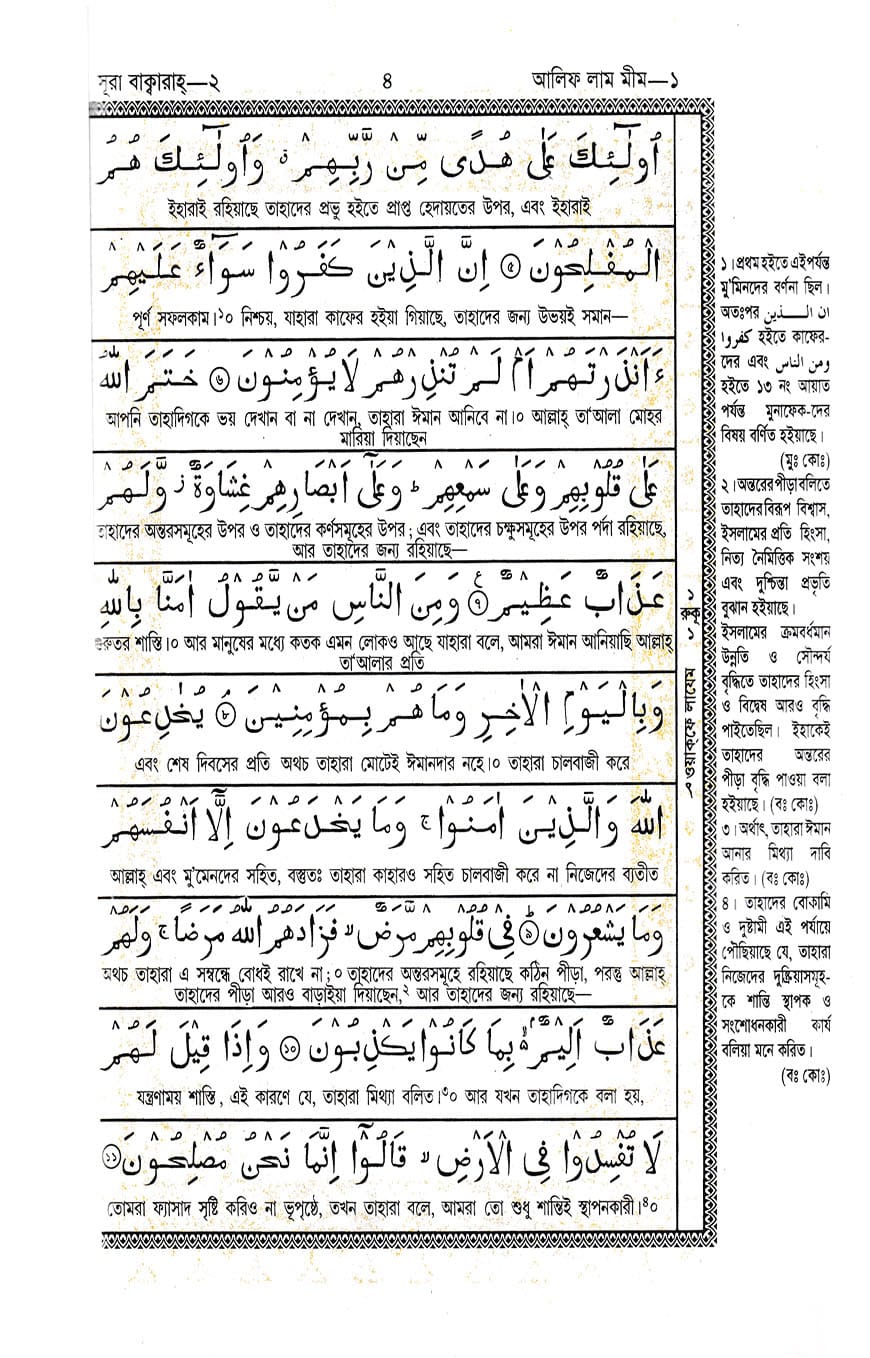 সূরা বাক্বারাহ্—২ ৪ আলিফ লাম মীম—১
اُولٰٓئِكَ عَلٰى هُدًى مِّنْ رَّبِّهِمْ ۙ وَاُولٰٓئِكَ هُمُ
ইহারাই রহিয়াছে তাহাদের প্রভু হইতে প্রাপ্ত হেদায়তের উপর, এবং ইহারাই
الْمُفْلِحُوْنَ ۝৫ اِنَّ الَّذِيْنَ كَفَرُوْا سَوَآءٌ عَلَيْهِمْ
পূর্ণ সফলকাম।১০ নিশ্চয়, যাহারা কাফের হইয়া গিয়াছে, তাহাদের জন্য উভয়ই সমান—
ءَاَنْذَرْتَهُمْ اَمْ لَمْ تُنْذِرْهُمْ لَا يُؤْمِنُوْنَ ۝৬ خَتَمَ اللّٰهُ
আপনি তাহাদিগকে ভয় দেখান বা না দেখান, তাহারা ঈমান আনিবে না।০ আল্লাহ্ তা'আলা মোহর
মারিয়া দিয়াছেন
عَلٰى قُلُوْبِهِمْ وَعَلٰى سَمْعِهِمْ ؕ وَعَلٰٓى اَبْصَارِهِمْ غِشَاوَةٌ ز وَّلَهُمْ
তাহাদের অন্তরসমূহের উপর ও তাহাদের কর্ণসমূহের উপর; এবং তাহাদের চক্ষুসমূহের উপর পর্দা রহিয়াছে,
আর তাহাদের জন্য রহিয়াছে—
عَذَابٌ عَظِيْمٌ ۝৭ ع وَمِنَ النَّاسِ مَنْ يَّقُوْلُ اٰمَنَّا بِاللّٰهِ
গুরুতর শাস্তি।০ আর মানুষের মধ্যে কতক এমন লোকও আছে যাহারা বলে, আমরা ঈমান আনিয়াছি আল্লাহ্
তা'আলার প্রতি
وَبِالْيَوْمِ الْاٰخِرِ وَمَا هُمْ بِمُؤْمِنِيْنَ ۝৮ يُخٰدِعُوْنَ
এবং শেষ দিবসের প্রতি অথচ তাহারা মোটেই ঈমানদার নহে।০ তাহারা চালবাজী করে
اللّٰهَ وَالَّذِيْنَ اٰمَنُوْا ۚ وَمَا يَخْدَعُوْنَ اِلَّاۤ اَنْفُسَهُمْ
আল্লাহ্ এবং মু'মেনদের সহিত, বস্তুতঃ তাহারা কাহারও সহিত চালবাজী করে না নিজেদের ব্যতীত
وَمَا يَشْعُرُوْنَ ۝৯ فِيْ قُلُوْبِهِمْ مَّرَضٌ ۙ فَزَادَهُمُ اللّٰهُ مَرَضًا ۚ وَلَهُمْ
অথচ তাহারা এ সম্বন্ধে বোধই রাখে না;০ তাহাদের অন্তরসমূহে রহিয়াছে কঠিন পীড়া, পরন্তু আল্লাহ্
তাহাদের পীড়া আরও বাড়াইয়া দিয়াছেন,২ আর তাহাদের জন্য রহিয়াছে—
عَذَابٌ اَلِيْمٌ ۢ ۙ بِمَا كَانُوْا يَكْذِبُوْنَ ۝১০ وَاِذَا قِيْلَ لَهُمْ
যন্ত্রণাময় শাস্তি, এই কারণে যে, তাহারা মিথ্যা বলিত।৩০ আর যখন তাহাদিগকে বলা হয়,
لَا تُفْسِدُوْا فِي الْاَرْضِ ۙ قَالُوْٓا اِنَّمَا نَحْنُ مُصْلِحُوْنَ ۝১১
তোমরা ফ্যাসাদ সৃষ্টি করিও না ভূপৃষ্ঠে, তখন তাহারা বলে, আমরা তো শুধু শান্তিই স্থাপনকারী।৪০
রুকূ
ওয়াক্‌ফে লাযেম
১। প্রথম হইতে এইপর্যন্ত
মু'মিনদের বর্ণনা ছিল।
অতঃপর ان الـذين
كفروا হইতে কাফের-
দের এবং ومن الناس
হইতে ১৩ নং আয়াত
পর্যন্ত মুনাফেক-দের
বিষয় বর্ণিত হইয়াছে।
(মুঃ কোঃ)
২। অন্তরের পীড়া বলিতে
তাহাদের বিরূপ বিশ্বাস,
ইসলামের প্রতি হিংসা,
নিত্য নৈমিত্তিক সংশয়
এবং দুশ্চিন্তা প্রভৃতি
বুঝান হইয়াছে।
ইসলামের ক্রমবর্ধমান
উন্নতি ও সৌন্দর্য
বৃদ্ধিতে তাহাদের হিংসা
ও বিদ্বেষ আরও বৃদ্ধি
পাইতেছিল। ইহাকেই
তাহাদের অন্তরের
পীড়া বৃদ্ধি পাওয়া বলা
হইয়াছে। (বঃ কোঃ)
৩। অর্থাৎ, তাহারা ঈমান
আনার মিথ্যা দাবি
করিত। (বঃ কোঃ)
৪। তাহাদের বোকামি
ও দুষ্টামী এই পর্যায়ে
পৌঁছিয়াছে যে, তাহারা
নিজেদের দুষ্ক্রিয়াসমূহ-
কে শান্তি স্থাপক ও
সংশোধনকারী কার্য
বলিয়া মনে করিত।
(বঃ কোঃ)